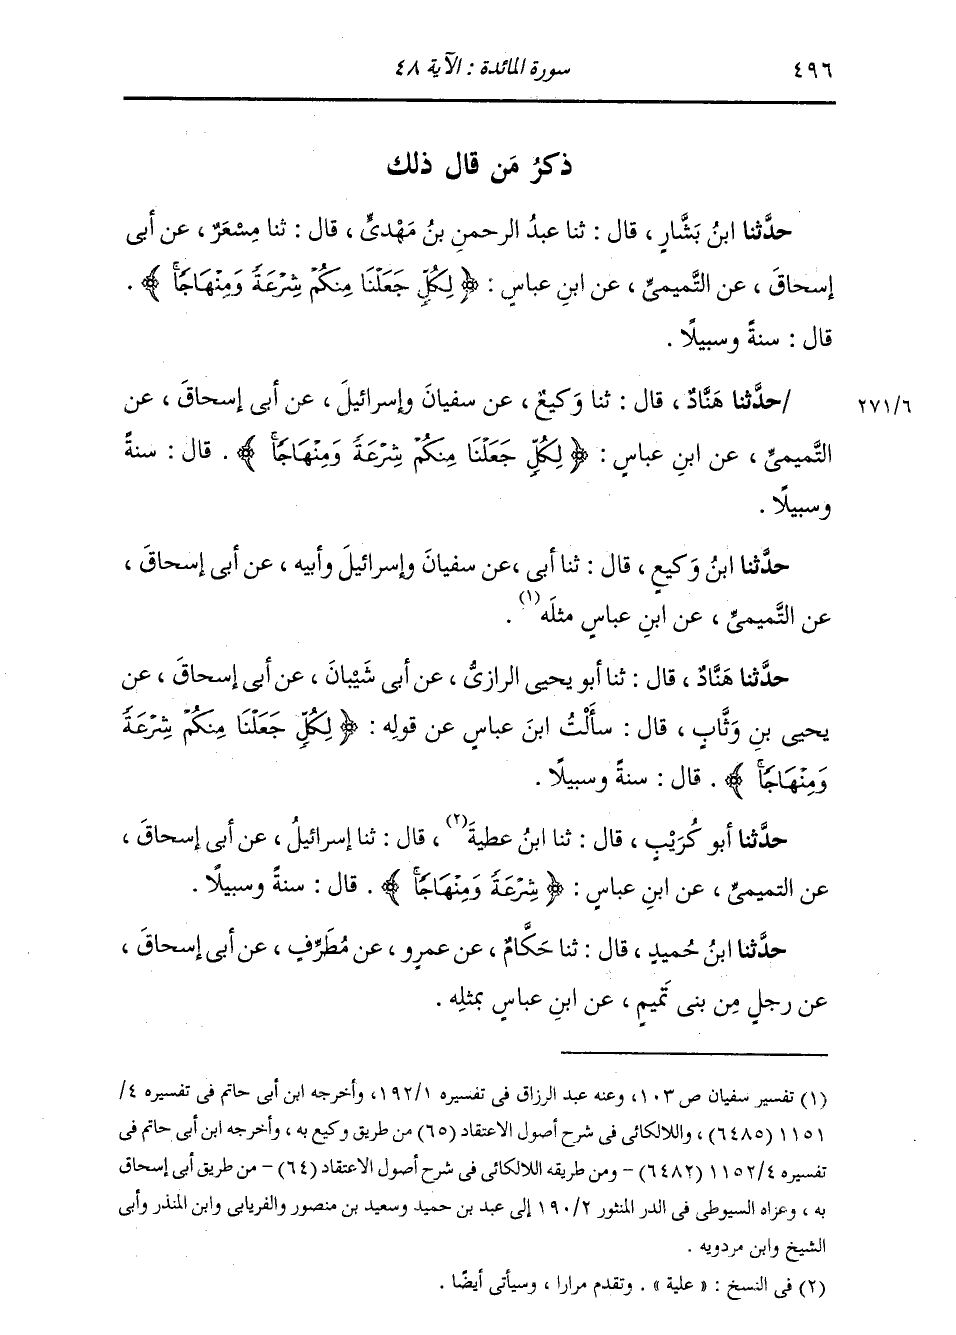 ٤٩٦ سورة المائدة : الآية ٤٨
ذكرُ مَن قال ذلك
حدَّثنا ابنُ بَشَّارٍ ، قال : ثنا عبدُ الرحمنِ بنُ مَهْدىٍّ ، قال : ثنا مِسْعَرٌ ، عن أبى
إسحاقَ ، عن التَّميمىِّ ، عن ابنِ عباسٍ : ﴿ لِكُلٍّ جَعَلْنَا مِنكُمْ شِرْعَةً وَمِنْهَاجًاۚ ﴾ .
قال : سنةً وسبيلًا .
٢٧١/٦ /حدَّثنا هَنَّادٌ ، قال : ثنا وَكيعٌ ، عن سفيانَ وإسرائيلَ ، عن أبى إسحاقَ ، عن
التَّميمىِّ ، عن ابنِ عباسٍ : ﴿ لِكُلٍّ جَعَلْنَا مِنكُمْ شِرْعَةً وَمِنْهَاجًاۚ ﴾ . قال : سنةً
وسبيلًا .
حدَّثنا ابنُ وَكيعٍ ، قال : ثنا أبى ،عن سفيانَ وإسرائيلَ وأبيه ، عن أبى إسحاقَ ،
عن التَّميمىِّ ، عن ابنِ عباسٍ مثلَه(١) .
حدَّثنا هَنَّادٌ ، قال : ثنا أبو يحيى الرازىُّ ، عن أبى شَيْبانَ ، عن أبى إسحاقَ ، عن
يحيى بنِ وَثَّابٍ ، قال : سأَلْتُ ابنَ عباسٍ عن قولِه : ﴿ لِكُلٍّ جَعَلْنَا مِنكُمْ شِرْعَةً
وَمِنْهَاجًاۚ ﴾ . قال : سنةً وسبيلًا .
حدَّثنا أبو كُرَيْبٍ ، قال : ثنا ابنُ عطيةَ(٢) ، قال : ثنا إسرائيلُ ، عن أبى إسحاقَ ،
عن التميمىِّ ، عن ابنِ عباسٍ : ﴿ شِرْعَةً وَمِنْهَاجًاۚ ﴾ . قال : سنةً وسبيلًا .
حدَّثنا ابنُ حُميدٍ ، قال : ثنا حَكَّامٌ ، عن عمرٍو ، عن مُطَرِّفٍ ، عن أبى إسحاقَ ،
عن رجلٍ مِن بنى تَميمٍ ، عن ابنِ عباسٍ بمثلِه .
(١) تفسير سفيان ص ١٠٣، وعنه عبد الرزاق فى تفسيره ١٩٢/١، وأخرجه ابن أبى حاتم فى تفسيره ٤/
١١٥١ (٦٤٨٥) ، واللالكائى فى شرح أصول الاعتقاد (٦٥) من طريق وكيع به ، وأخرجه ابن أبى حاتم فى
تفسيره ١١٥٢/٤ (٦٤٨٢) - ومن طريقه اللالكائى فى شرح أصول الاعتقاد (٦٤) - من طريق أبى إسحاق
به ، وعزاه السيوطى فى الدر المنثور ٢٩٠/٢ إلى عبد بن حميد وسعيد بن منصور والفريابى وابن المنذر وأبى
الشيخ وابن مردويه .
(٢) فى النسخ : « علية » . وتقدم مرارا ، وسيأتى أيضًا .